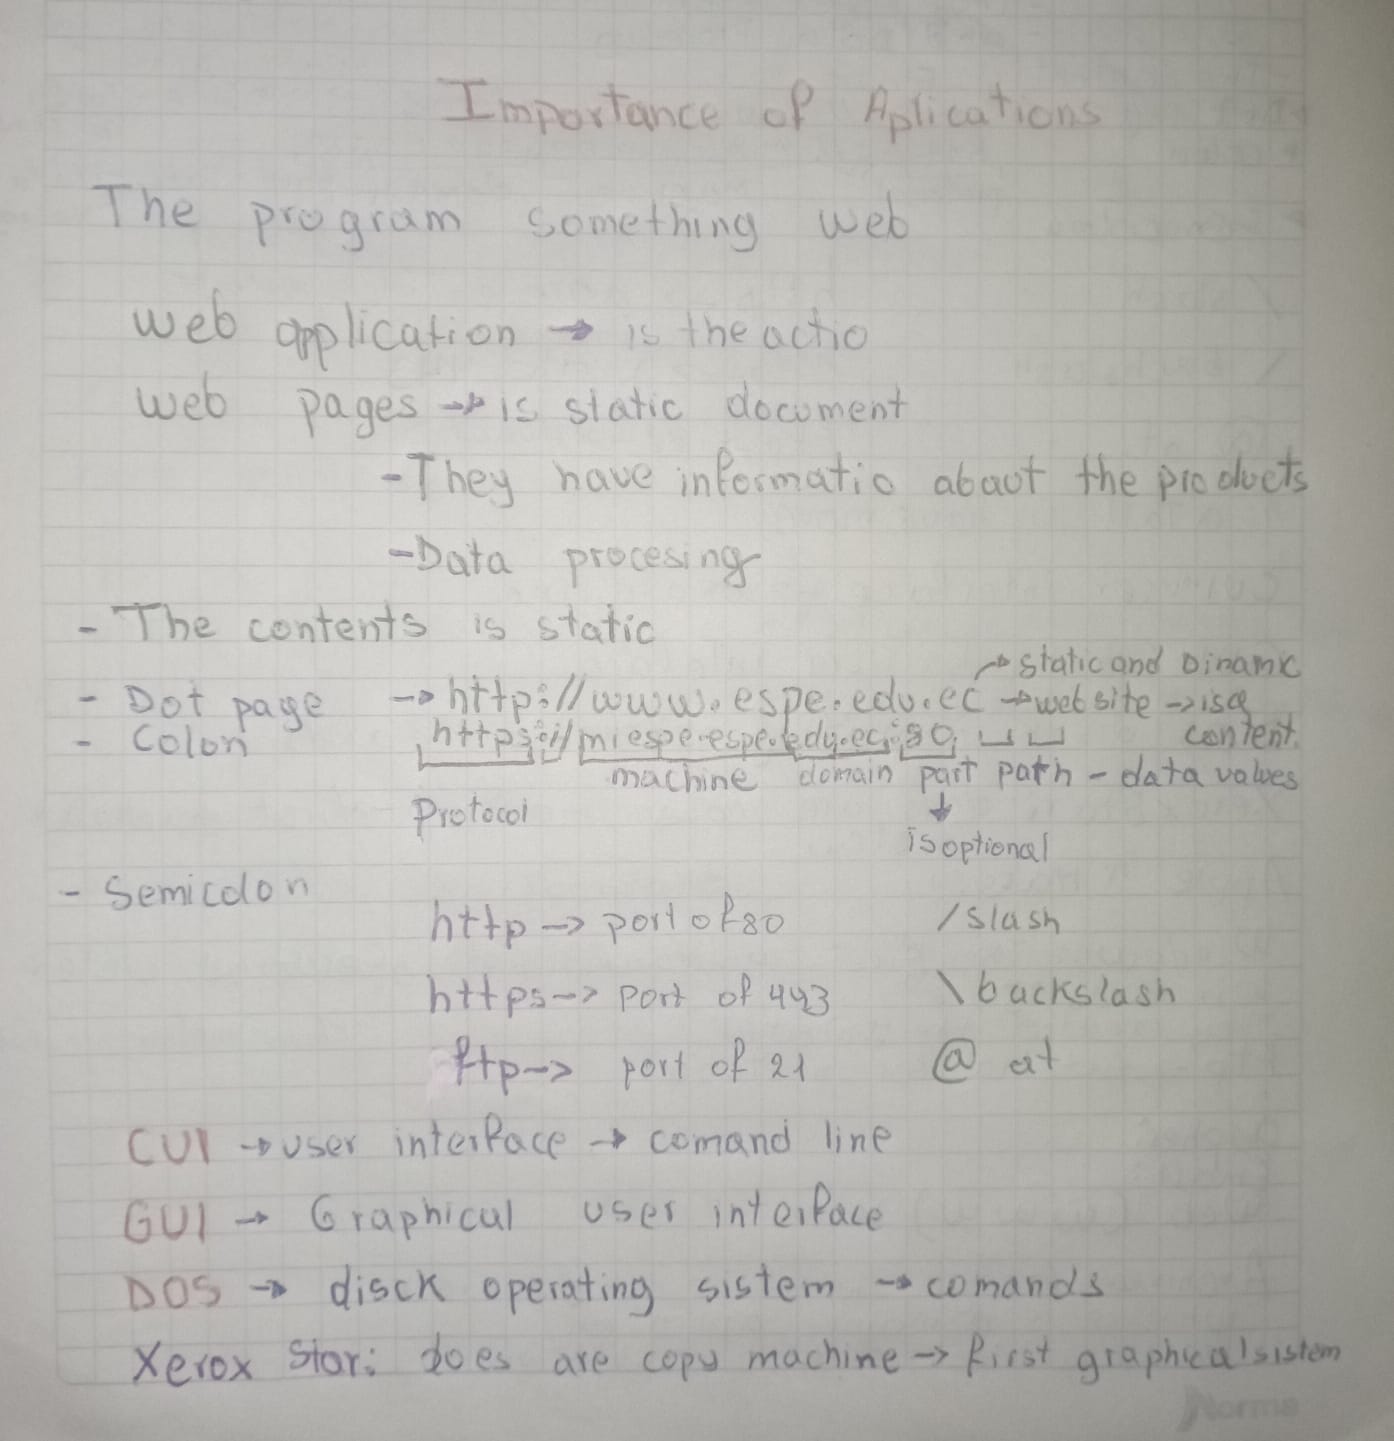 Importance of Aplications
The program something web
web application → is the actio
web pages → is static document
- They have informatio abaut the products
- Data procesing
- The contents is static
→ static and Dinamic
- Dot page → http://www.espe.edu.ec → web site → is a
content.
- Colon https://miespe.espe.edu.ec:80
machine domain part path - data values
Protocol
is optional
- Semicolon
http -> port of 80 / slash
https -> port of 443 \ backslash
ftp -> port of 21 @ at
CUI → user interface → comand line
GUI → Graphical user interface
DOS → disck operating sistem → comands
Xerox Star: does are copy machine -> first graphical sistem
Norma